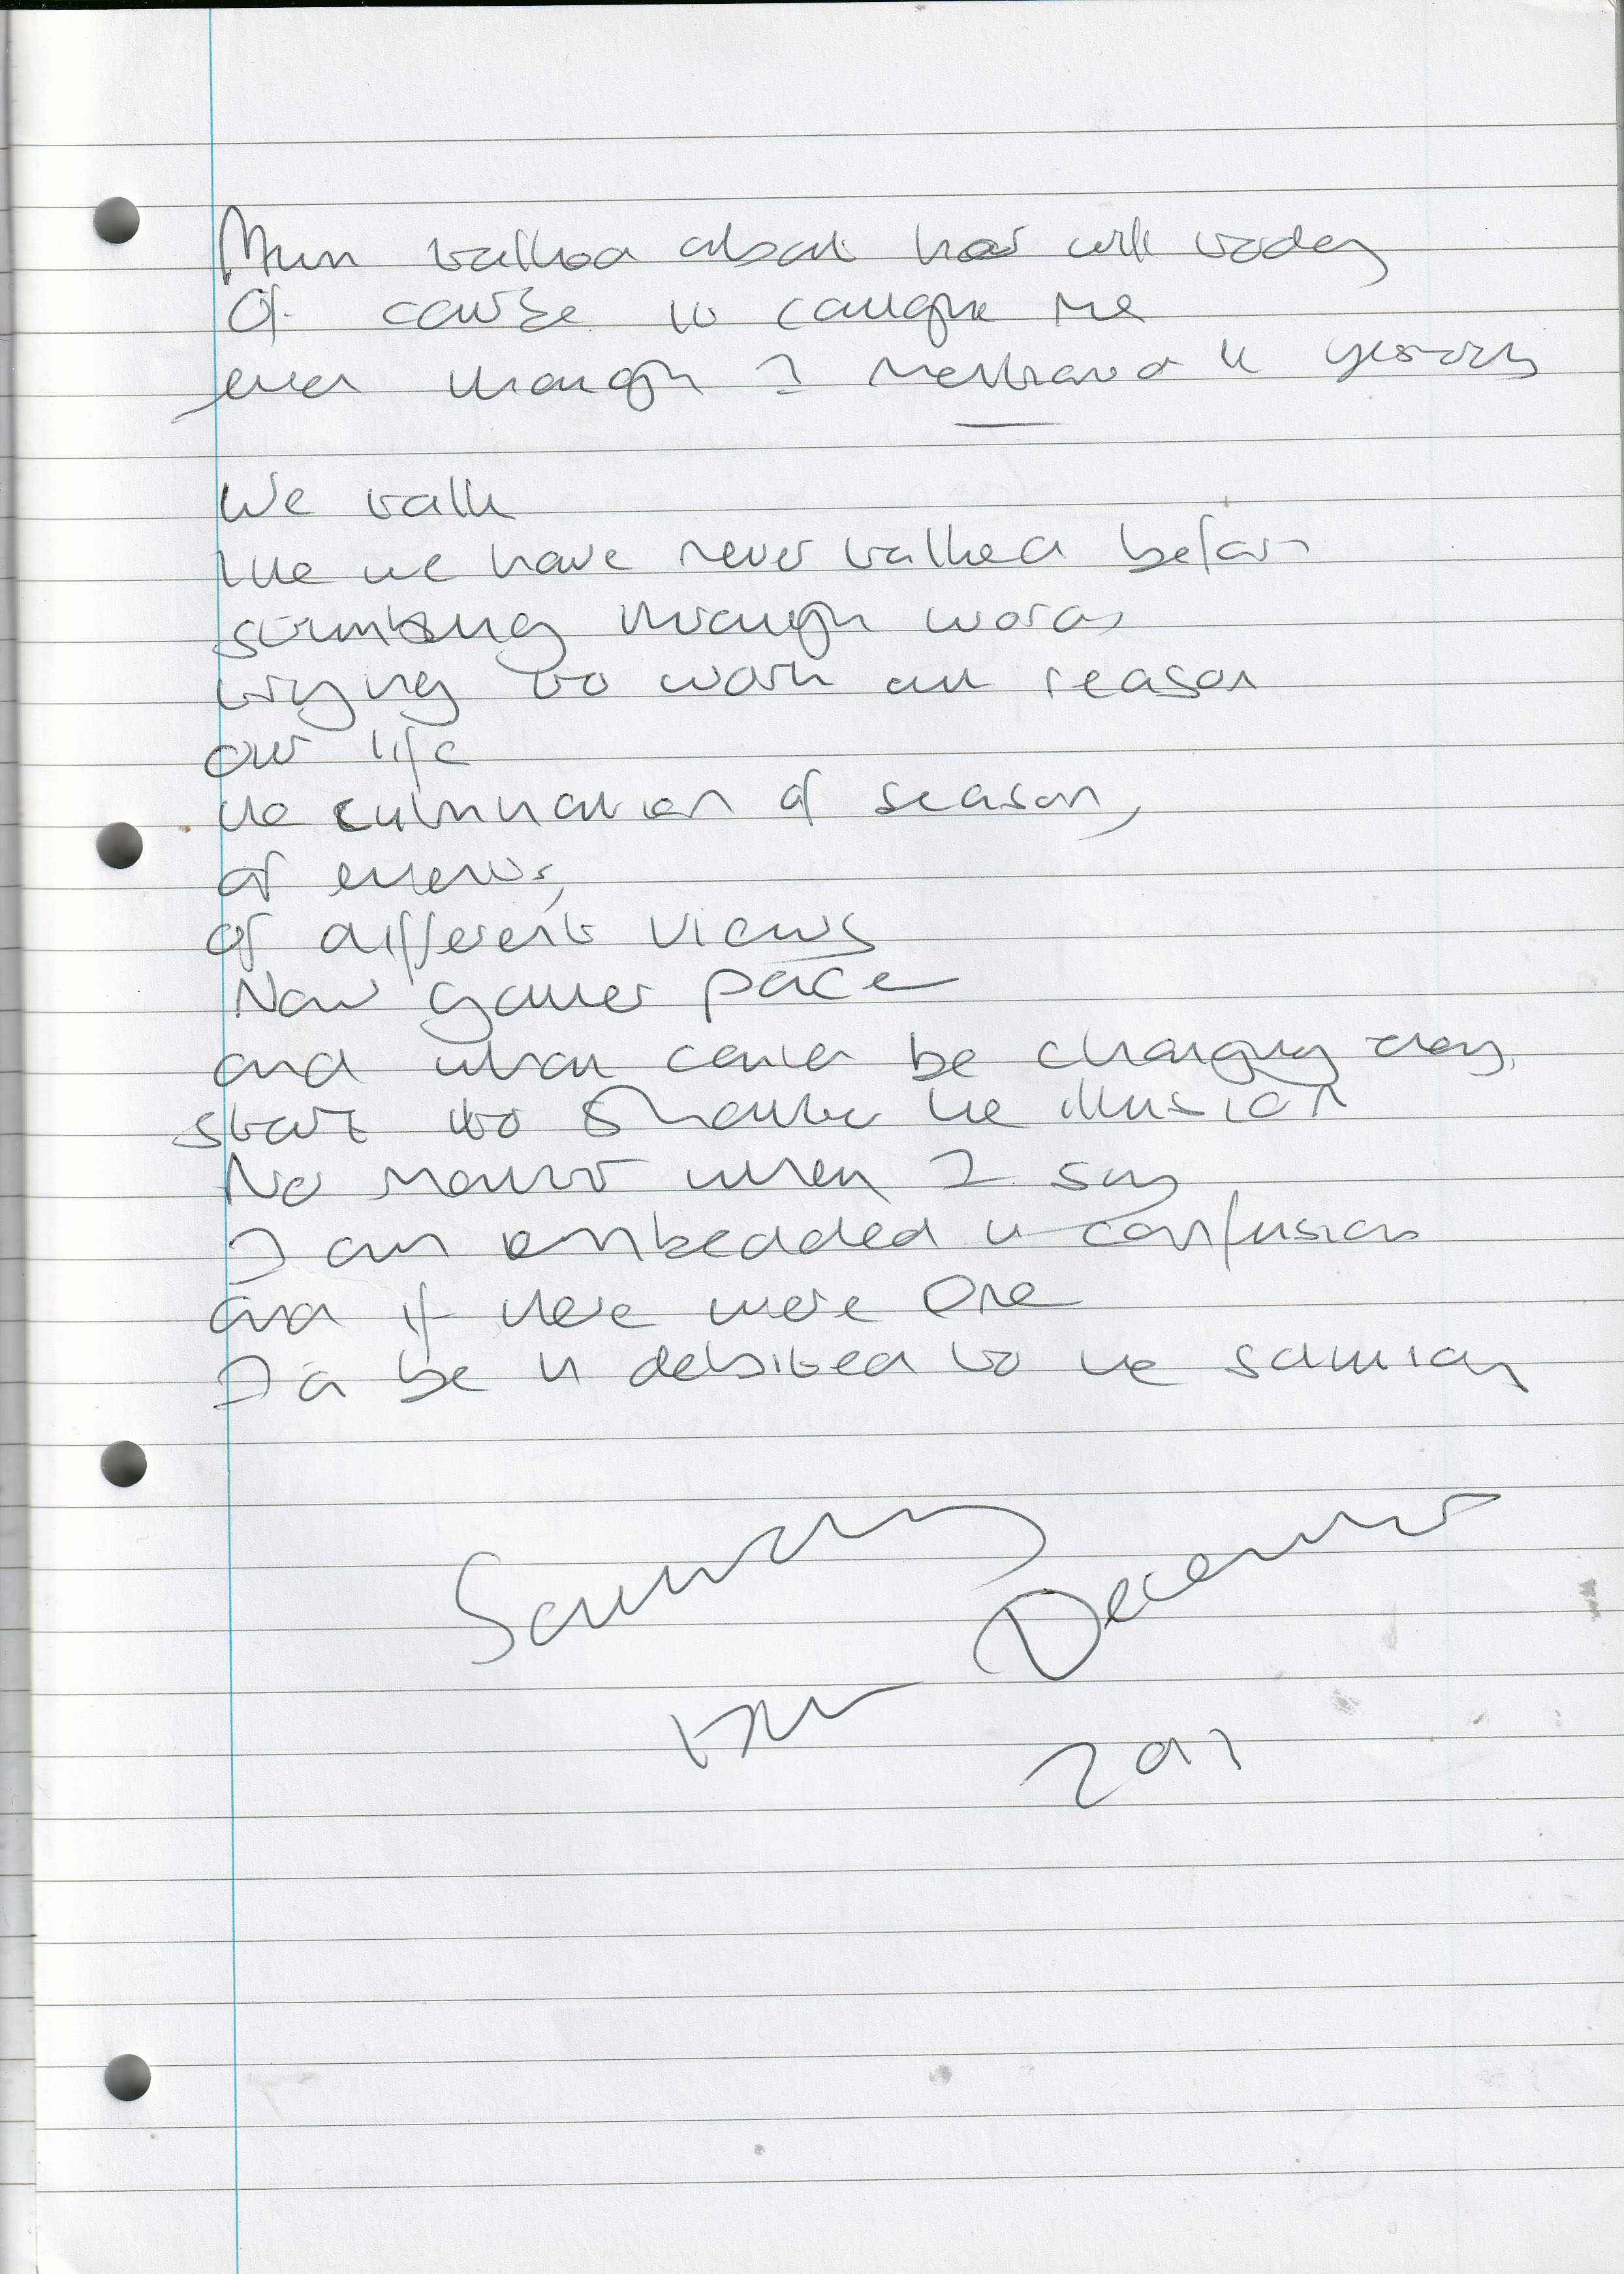 Mum talked about her will today
Of course it caught me
even though I mentioned it yesterday
We talk
like we have never talked before
stumbling through words
trying to work out reason
our life
the culmination of seasons,
of events,
of different views
Now gather pace
and what could be changing days,
start to shatter the illusion
No matter when I say
I am embedded in confusion
and if there were one
I'd be indebted to the solution
December
201